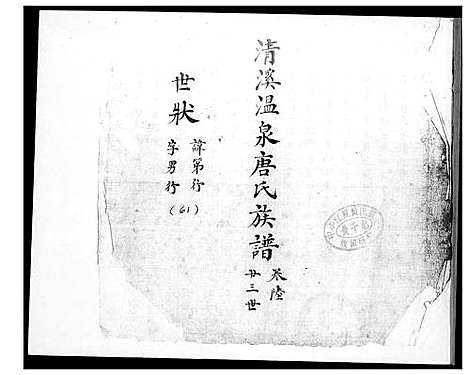 清溪温泉唐氏族譜
卷陸
廿三世
世狀
諱第行
字男行
(61)